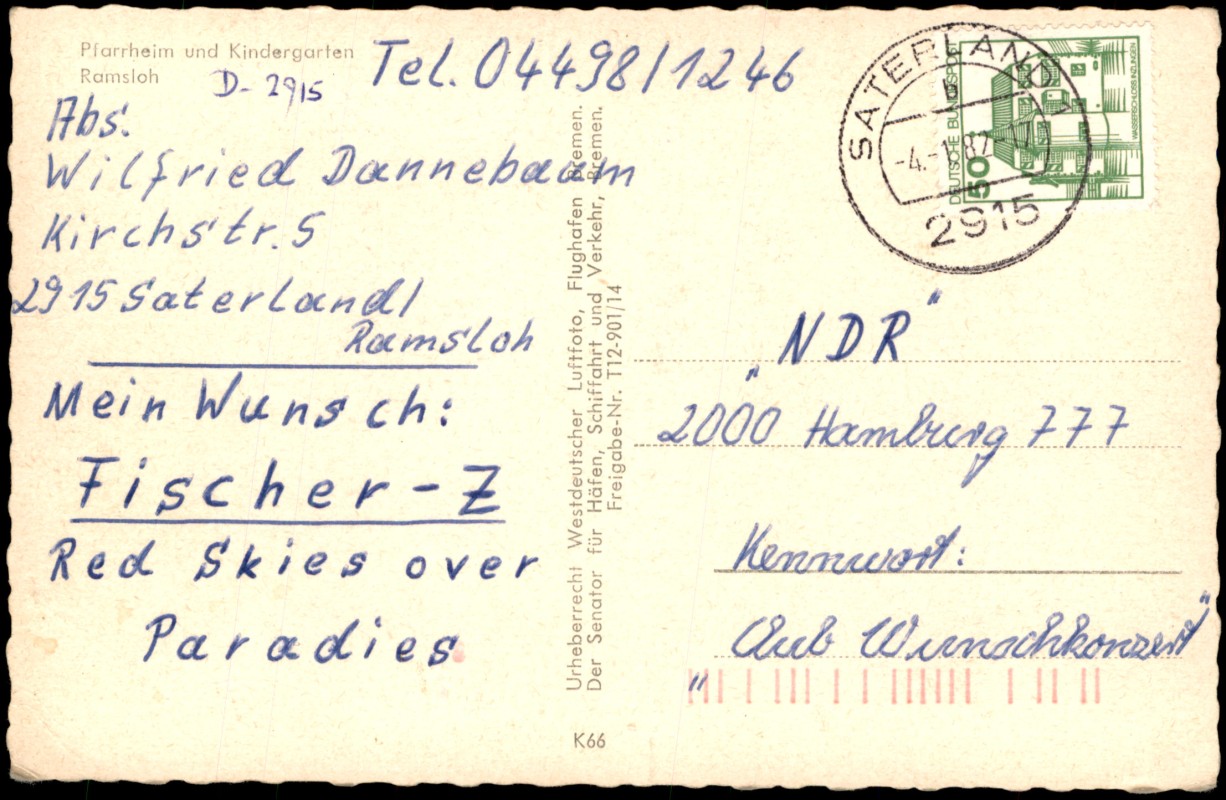 Pfarrheim und Kindergarten
Ramsloh
D-2915
Tel. 04498/1246
Abs.
Wilfried Dannebaum
Kirchstr. 5
2915 Saterland 1
Ramsloh
Mein Wunsch:
Fischer-Z
Red Skies over
Paradies
Urheberrecht Westdeutscher Luftfoto, Flughafen Bremen.
Der Senator für Häfen, Schiffahrt und Verkehr, Bremen.
Freigabe-Nr. T12-901/14
K66
SATERLAND 1
b
-4.-1.82-17
2915
DEUTSCHE BUNDESPOST
50
WASSERSCHLOSS INZLINGEN
„NDR"
2000 Hamburg 777
Kennwort:
„Club Wunschkonzert"